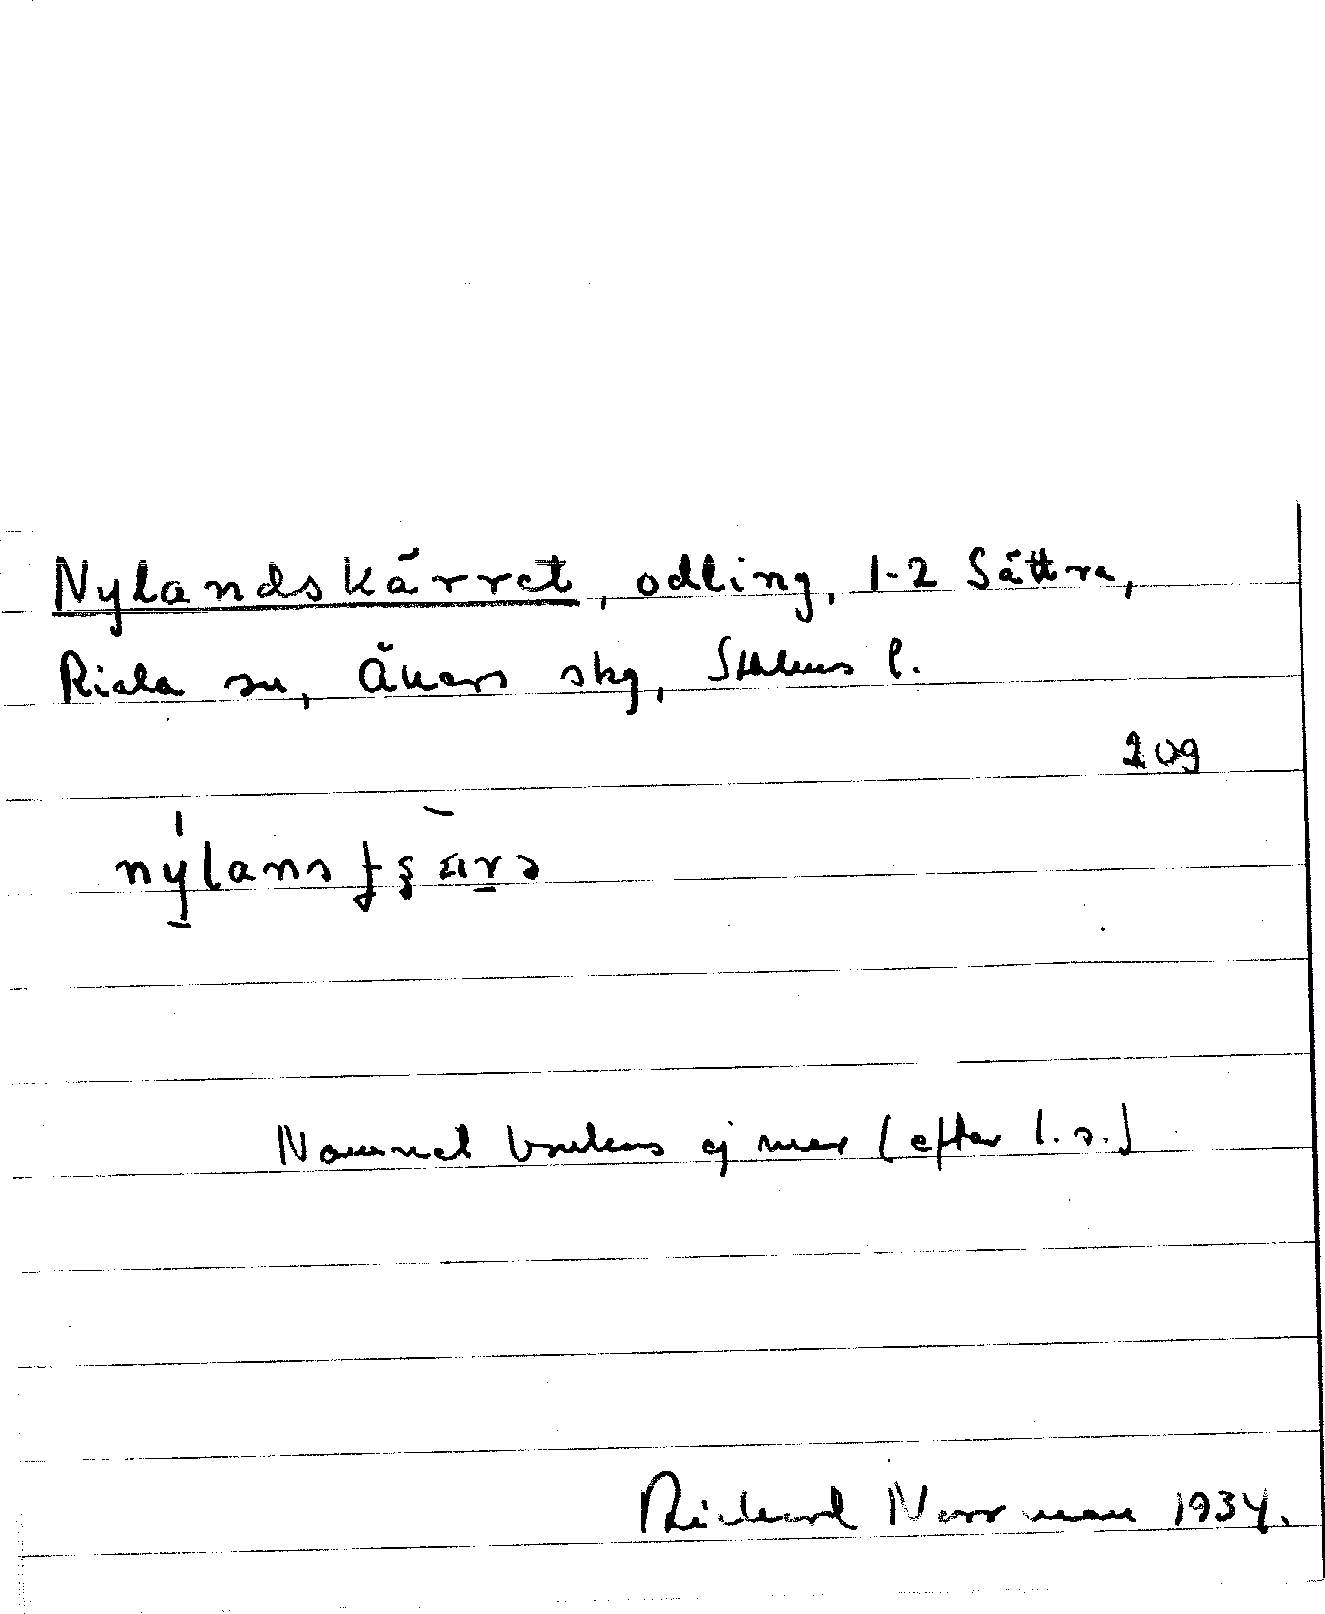 Nylandskärret, odling, 1-2 Sättra,
Riala sn, Åkers skg, Sthlms l.
209
Namnet brukas ej mer (efter l.s.)
Rickard Norrman 1934.